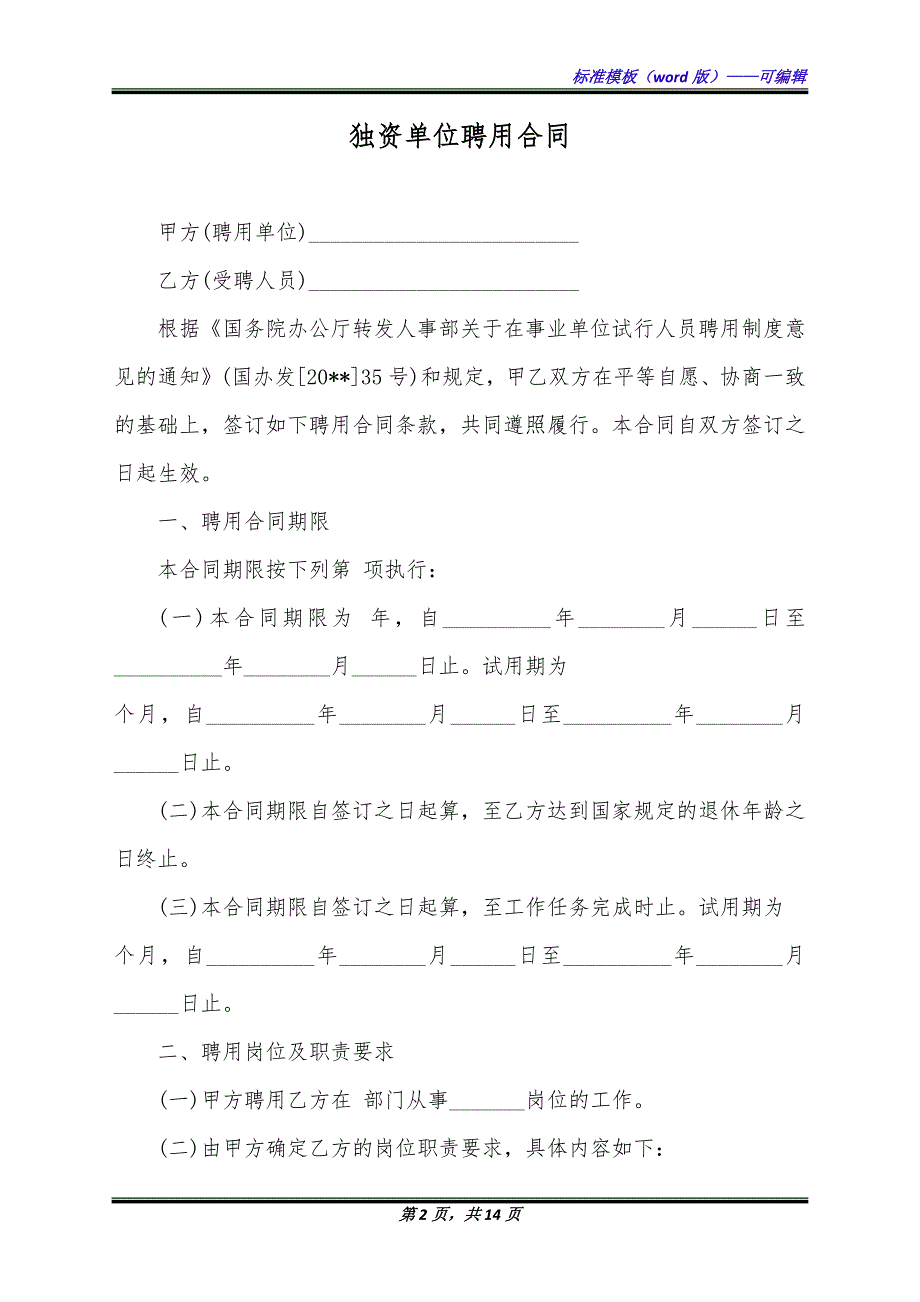 标准模板（word 版）——可编辑
独资单位聘用合同
甲方(聘用单位)_________________________
乙方(受聘人员)_________________________
根据《国务院办公厅转发人事部关于在事业单位试行人员聘用制度意
见的通知》(国办发[20**]35 号)和规定，甲乙双方在平等自愿、协商一致
的基础上，签订如下聘用合同条款，共同遵照履行。本合同自双方签订之
日起生效。
一、聘用合同期限
本合同期限按下列第 项执行：
(一)本合同期限为 年，自__________年________月______日至
__________年________月______日止。试用期为
个月，自__________年________月______日至__________年________月
______日止。
(二)本合同期限自签订之日起算，至乙方达到国家规定的退休年龄之
日终止。
(三)本合同期限自签订之日起算，至工作任务完成时止。试用期为
个月，自__________年________月______日至__________年________月
______日止。
二、聘用岗位及职责要求
(一)甲方聘用乙方在 部门从事_______岗位的工作。
(二)由甲方确定乙方的岗位职责要求，具体内容如下：
第 2 页，共 14 页